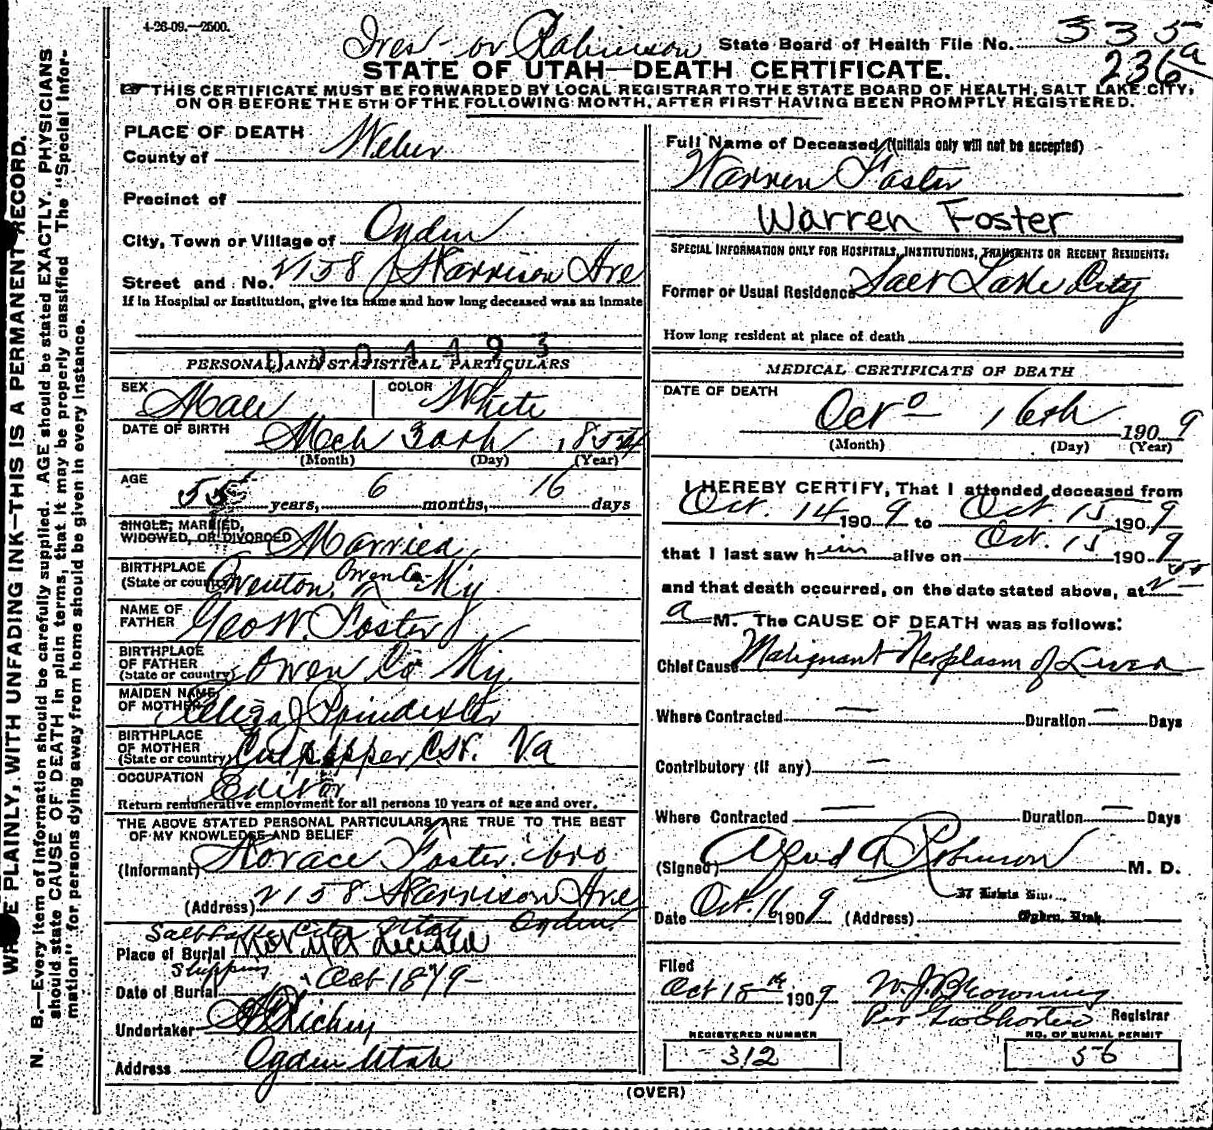 4-26-09.—2500.
or Robinson State Board of Health File No. 335
236a
STATE OF UTAH—DEATH CERTIFICATE.
THIS CERTIFICATE MUST BE FORWARDED BY LOCAL REGISTRAR TO THE STATE BOARD OF HEALTH, SALT LAKE CITY,
ON OR BEFORE THE 5TH OF THE FOLLOWING MONTH, AFTER FIRST HAVING BEEN PROMPTLY REGISTERED.
PLACE OF DEATH
County of Weber
Precinct of
City, Town or Village of Ogden
Street and No. 2158 Harrison Ave
If in Hospital or Institution, give its name and how long deceased was an inmate
PERSONAL AND STATISTICAL PARTICULARS
SEX Male COLOR White
DATE OF BIRTH Mch 30th 1854
(Month) (Day) (Year)
AGE 55 years, 6 months, 16 days
SINGLE, MARRIED,
WIDOWED, OR DIVORCED Married
BIRTHPLACE
(State or country) Owenton, Owen Co Ky
NAME OF
FATHER Geo W. Foster
BIRTHPLACE
OF FATHER
(State or country) Owen Co Ky.
MAIDEN NAME
OF MOTHER Eliza J Poindexter
BIRTHPLACE
OF MOTHER
(State or country) Culpepper, C.H. Va
OCCUPATION Editor
Return remunerative employment for all persons 10 years of age and over.
THE ABOVE STATED PERSONAL PARTICULARS ARE TRUE TO THE BEST
OF MY KNOWLEDGE AND BELIEF
(Informant) Horace Foster bro
(Address) 2158 Harrison Ave
Ogden.
Salt Lake City Utah
Place of Burial Not yet decided
Shipping
Date of Burial Oct 18 / 9
Undertaker Richey
Address Ogden Utah
Full Name of Deceased (Initials only will not be accepted)
Warren Foster
Warren Foster
SPECIAL INFORMATION ONLY FOR HOSPITALS, INSTITUTIONS, TRANSIENTS OR RECENT RESIDENTS:
Former or Usual Residence Salt Lake City
How long resident at place of death
MEDICAL CERTIFICATE OF DEATH
DATE OF DEATH
Oct 16th 1909
(Month) (Day) (Year)
I HEREBY CERTIFY, That I attended deceased from
Oct. 14 1909 to Oct 15 1909
that I last saw him alive on Oct. 15 1909
and that death occurred, on the date stated above, at 2
a M. The CAUSE OF DEATH was as follows:
Chief Cause Malignant Neoplasm of Liver
Where Contracted — Duration — Days
Contributory (if any) —
Where Contracted — Duration — Days
(Signed) Alfred A Robinson M. D.
Date Oct. 1909 (Address) Ogden, Utah
Filed
Oct 18th 1909 W. J. Browning
Registrar
REGISTERED NUMBER
312
NO. OF BURIAL PERMIT
56
(OVER)
WRITE PLAINLY, WITH UNFADING INK—THIS IS A PERMANENT RECORD.
N. B.—Every item of information should be carefully supplied. AGE should be stated EXACTLY. PHYSICIANS
should state CAUSE OF DEATH in plain terms, that it may be properly classified. The "Special Infor-
mation" for persons dying away from home should be given in every instance.